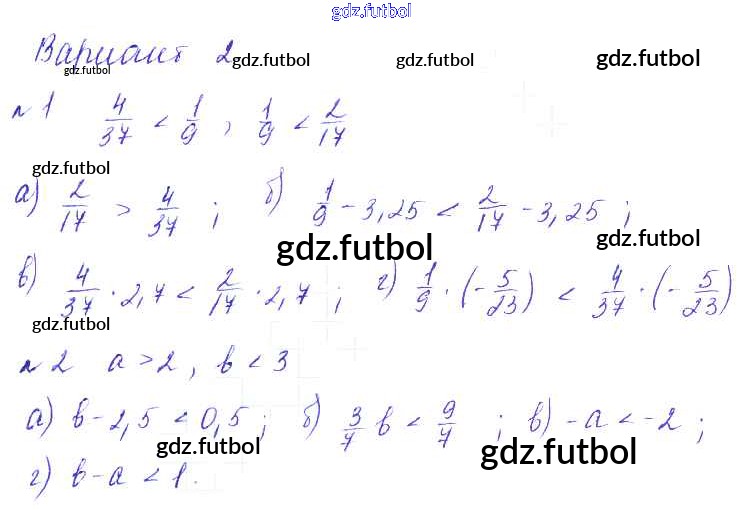 gdz.futbol
Вариант 2
gdz.futbol gdz.futbol gdz.futbol gdz.futbol
n 1 4/37 < 1/9 , 1/9 < 2/17
gdz.futbol
а) 2/17 > 4/37 ; б) 1/9 - 3,25 < 2/17 - 3,25 ;
gdz.futbol gdz.futbol
в) 4/37 · 2,7 < 2/17 · 2,7 ; г) 1/9 · (-5/23) < 4/37 · (-5/23)
gdz.futbol
n 2 a > 2 , b < 3
а) b - 2,5 < 0,5 ; б) 3/7 b < 9/7 ; в) -a < -2 ;
gdz.futbol gdz.futbol
г) b - a < 1.